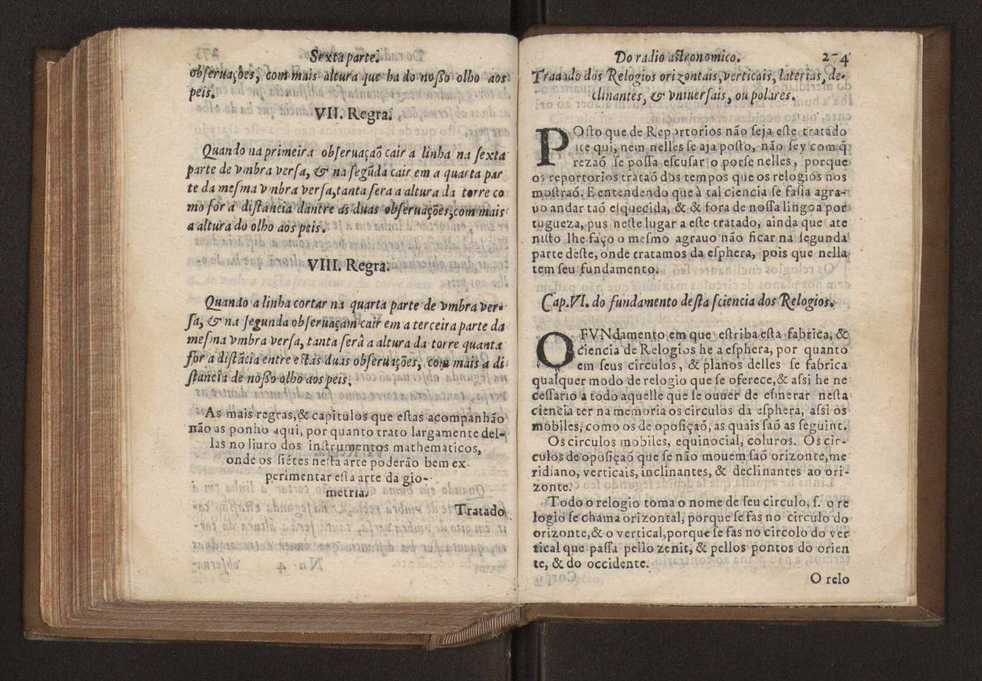 Sexta parte.
obſeruações, com mais altura que ha do noſſo olho aos
peis.
VII. Regra.
Quando na primeira obſeruaçaõ cair a linha na ſexta
parte de vmbra verſa, & na ſegũda cair em a quarta par
te da meſma vmbra verſa, tanta ſera a altura da torre co
mo for a diſtancia dantre as duas obſeruações, com mais
a altura do olho aos peis.
VIII. Regra.
Quando a linha cortar na quarta parte de vmbra ver-
ſa, & na ſegunda obſeruaçam cair em a terceira parte da
meſma vmbra verſa, tanta ſerà a altura da torre quanta
for a diſtãcia entre eſtas duas obſeruações, com mais a di
ſtancia de noſſo olho aos peis.
As mais regras, & capitulos que eſtas acompanhão
não as ponho aqui, por quanto trato largamente del-
las no liuro dos inſtrumentos mathematicos,
onde os ſiẽtes neſta arte poderão bem ex
perimentar eſta arte da gio-
metria.
Tratado
Do radio astronomico. 274
Tratado dos Relogios orizontais, verticais, laterias, de-
clinantes, & vniuerſais, ou polares.
POſto que de Repertorios não ſeja eſte tratado
nem nelles ſe aja poſto, não ſey com q̃
rezaõ ſe poſſa eſcuſar o porſe nelles, porque
os reportorios trataõ dos tempos que os relogios nos
moſtraõ. E entendendo que à tal ciencia ſe faſia agra-
uo andar taõ eſquecida, & & fora de noſſa lingoa por
tugueza, pus neſte lugar a eſte tratado, ainda que ate
niſto lhe faço o meſmo agrauo não ficar na ſegunda
parte deſte, onde tratamos da eſphera, pois que nella
tem ſeu fundamento.
Cap. VI. do fundamento deſta ſciencia dos Relogios.
O FVNdamento em que eſtriba eſta fabrica, &
ciencia de Relogios he a eſphera, por quanto
em ſeus circulos, & planos delles ſe fabrica
qualquer modo de relogio que ſe oferece, & aſsi he ne
ceſſario a todo aquelle que ſe ouuer de eſmerar neſta
ciencia ter na memoria os circulos da eſphera, aſsi os
mobiles, como os de opoſiçaõ, as quais ſaõ as ſeguint.
Os circulos mobiles, equinocial, coluros. Os cir-
culos de opoſiçaõ que ſe não mouem ſaõ orizonte, me
ridiano, verticais, inclinantes, & declinantes ao ori-
zonte.
Todo o relogio toma o nome de ſeu circulo, ſ. o re
logio ſe chama orizontal, porque ſe fas no circulo do
orizonte, & o vertical, porque ſe fas no circolo do ver
tical que paſſa pello zenit, & pellos pontos do orien
te, & do occidente.
O relo